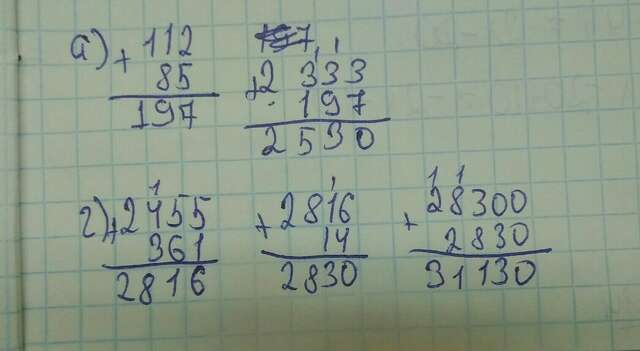 а) + 112 197
85
197
1 1
+ 2 333
197
2530
1
г) + 2455
361
2816
1
+ 2816
14
2830
1 1
+ 28300
2830
31130